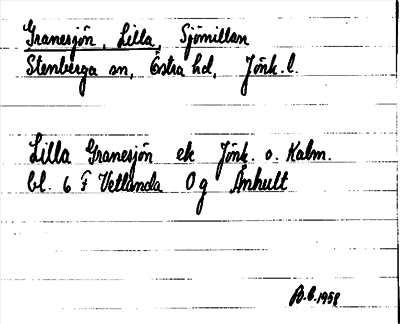 Granesjön, Lilla, Sjömillan
Stenberga sn, Östra hd, Jönk. l.
Lilla Granesjön ek Jönk. o. Kalm.
bl. 6 F Vetlanda Og Änhult
B.E. 1958